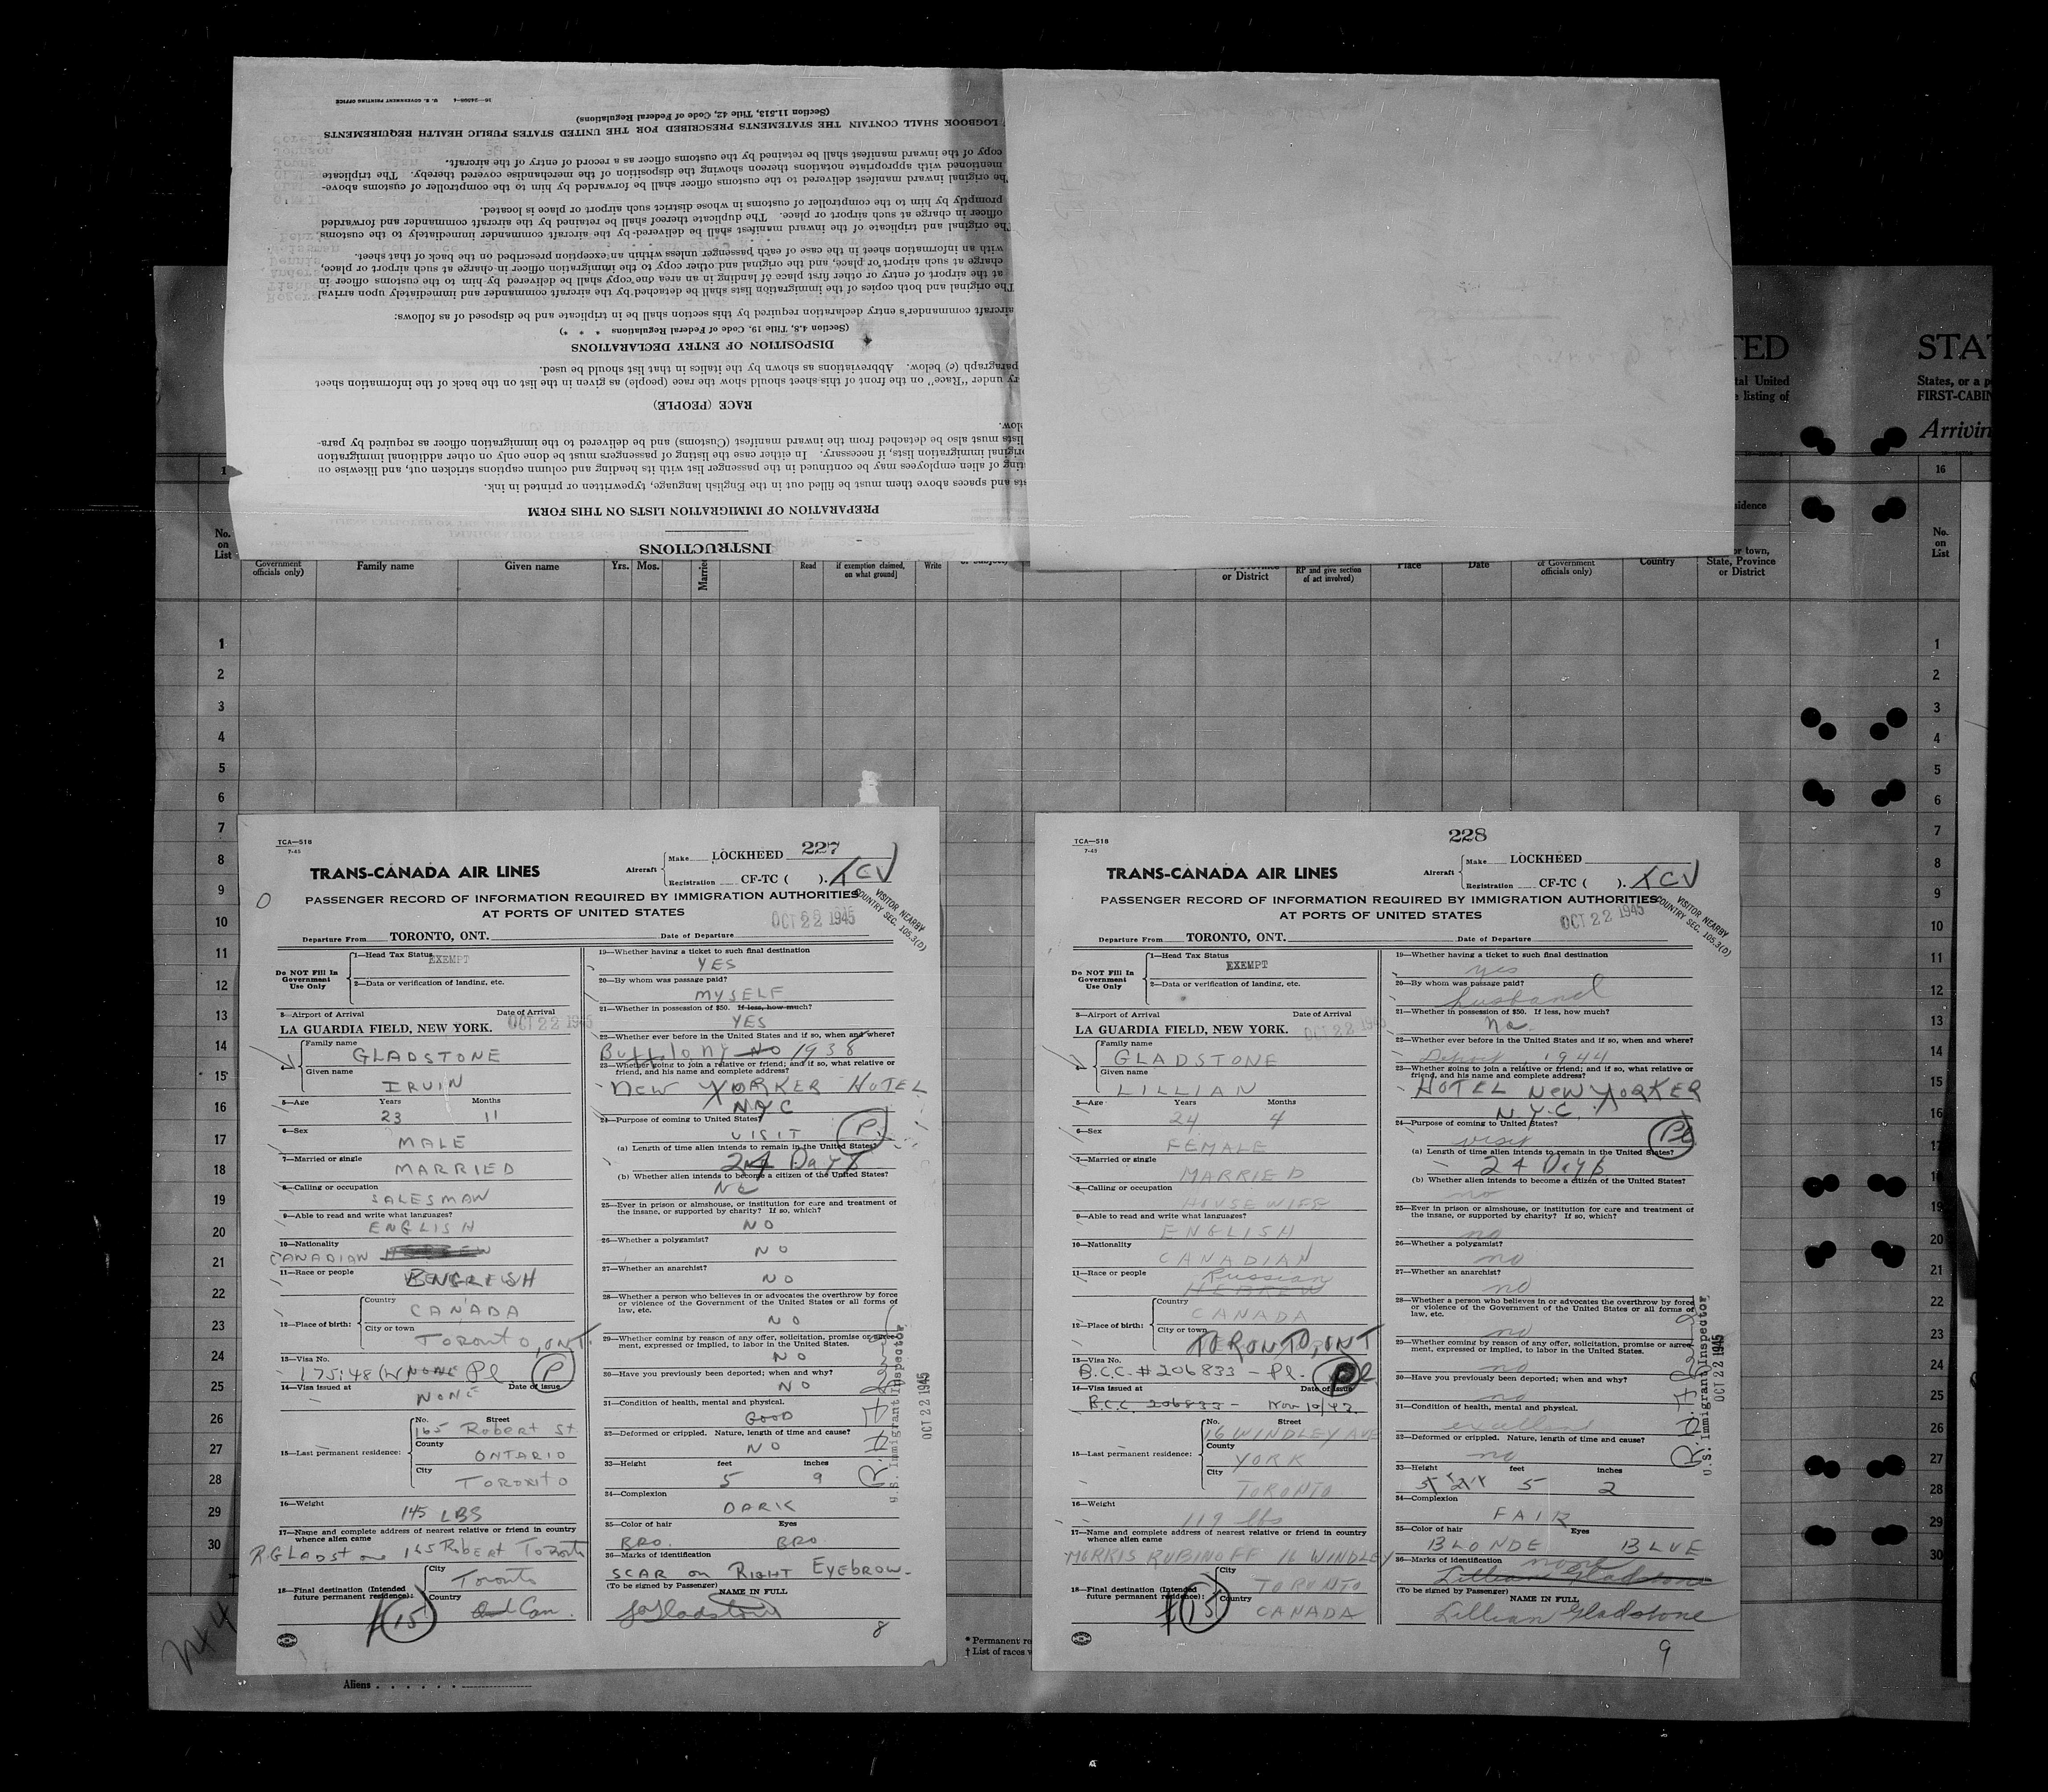 INSTRUCTIONS
PREPARATION OF IMMIGRATION LISTS ON THIS FORM
and spaces above them must be filled out in the English language, typewritten or printed in ink.
of alien employees may be continued in the passenger list with its heading and column captions stricken out, and likewise on
original immigration lists, if necessary. In either case the listing of passengers must be done only on other additional immigration
lists must also be detached from the inward manifest (Customs) and be delivered to the immigration officer as required by para-
RACE (PEOPLE)
under "Race" on the front of this sheet should show the race (people) as given in the list on the back of the information sheet
paragraph (c) below. Abbreviations as shown by the italics in that list should be used.
DISPOSITION OF ENTRY DECLARATIONS
(Section 4.8, Title 19, Code of Federal Regulations * * *)
aircraft commander's entry declaration required by this section shall be in triplicate and be disposed of as follows:
The original and both copies of the immigration lists shall be detached by the aircraft commander and immediately upon arrival
at the airport of entry or other first place of landing in an area one copy shall be delivered by him to the customs officer in
charge at such airport or place, and the original and other copy to the immigration officer in charge at such airport or place,
with an information sheet in the case of each passenger unless within an exception prescribed on the back of that sheet.
The original and triplicate of the inward manifest shall be delivered by the aircraft commander immediately to the customs
officer in charge at such airport or place. The duplicate thereof shall be retained by the aircraft commander and forwarded
promptly by him to the comptroller of customs in whose district such airport or place is located.
The original inward manifest delivered to the customs officer shall be forwarded by him to the comptroller of customs above-
mentioned with appropriate notations thereon showing the disposition of the merchandise covered thereby. The triplicate
copy of the inward manifest shall be retained by the customs officer as a record of entry of the aircraft.
LOGBOOK SHALL CONTAIN THE STATEMENTS PRESCRIBED FOR THE UNITED STATES PUBLIC HEALTH REQUIREMENTS
(Section 11.513, Title 42, Code of Federal Regulations)
U. S. GOVERNMENT PRINTING OFFICE
TED STA
tal United States, or a p
listing of FIRST-CABIN
Arrivin
1 16
No. on List
Government officials only)
Family name
Given name
Yrs. Mos.
Married
Read
if exemption claimed, on what ground]
Write
or District
RP and give section of act involved)
Place
Date
of Government officials only)
Country
or town, State, Province or District
No. on List
1 1
2 2
3 3
4 4
5 5
6 6
7 7
8 8
9 9
10 10
11 11
12 12
13 13
14 14
15 15
16 16
17 17
18 18
19 19
20 20
21 21
22 22
23 23
24 24
25 25
26 26
27 27
28 28
29 29
30 30
TCA—518
7-45
227
TRANS-CANADA AIR LINES
Aircraft Make LOCKHEED
Registration CF-TC ( ). TCV
PASSENGER RECORD OF INFORMATION REQUIRED BY IMMIGRATION AUTHORITIES
AT PORTS OF UNITED STATES
VISITOR NEARBY
COUNTRY SEC. 105.3(D)
OCT 22 1945
Departure From TORONTO, ONT. Date of Departure
Do NOT Fill In Government Use Only
1—Head Tax Status EXEMPT
2—Data or verification of landing, etc.
3—Airport of Arrival Date of Arrival
LA GUARDIA FIELD, NEW YORK. OCT 22 1945
4— Family name
GLADSTONE
Given name
IRVIN
5—Age Years Months
23 11
6—Sex
MALE
7—Married or single
MARRIED
8—Calling or occupation
SALESMAN
9—Able to read and write what languages?
ENGLISH
10—Nationality
CANADIAN
11—Race or people
ENGLISH
12—Place of birth: Country
CANADA
City or town
TORONTO, ONT.
13—Visa No.
NONE Pl P
14—Visa issued at Date of issue
NONE
15—Last permanent residence: No. Street
165 Robert St
County
ONTARIO
City
TORONTO
16—Weight
145 LBS
17—Name and complete address of nearest relative or friend in country
whence alien came
R GLADSTONE 165 Robert Toronto
18—Final destination (Intended future permanent residence): City
Toronto
Country
Can.
15
19—Whether having a ticket to such final destination
YES
20—By whom was passage paid?
MYSELF
21—Whether in possession of $50. If less, how much?
YES
22—Whether ever before in the United States and if so, when and where?
Buffalo NY NO 1938
23—Whether going to join a relative or friend; and if so, what relative or
friend, and his name and complete address?
NEW YORKER HOTEL
NYC
24—Purpose of coming to United States?
VISIT P
(a) Length of time alien intends to remain in the United States?
Days
(b) Whether alien intends to become a citizen of the United States?
NO
25—Ever in prison or almshouse, or institution for care and treatment of
the insane, or supported by charity? If so, which?
NO
26—Whether a polygamist?
NO
27—Whether an anarchist?
NO
28—Whether a person who believes in or advocates the overthrow by force
or violence of the Government of the United States or all forms of
law, etc.
NO
29—Whether coming by reason of any offer, solicitation, promise or agree-
ment, expressed or implied, to labor in the United States.
NO
30—Have you previously been deported; when and why?
NO
31—Condition of health, mental and physical.
GOOD
32—Deformed or crippled. Nature, length of time and cause?
NO
33—Height feet inches
5 9
34—Complexion
DARK
35—Color of hair Eyes
BRO. BRO.
36—Marks of identification
SCAR on RIGHT EYEBROW
(To be signed by Passenger) NAME IN FULL
Gladstone
8
U.S. Immigrant Inspector
OCT 22 1945
228
TCA—518
7-45
TRANS-CANADA AIR LINES
Aircraft Make LOCKHEED
Registration CF-TC ( ). TCV
PASSENGER RECORD OF INFORMATION REQUIRED BY IMMIGRATION AUTHORITIES
AT PORTS OF UNITED STATES
VISITOR NEARBY
COUNTRY SEC. 105.3(D)
OCT 22 1945
Departure From TORONTO, ONT. Date of Departure
Do NOT Fill In Government Use Only
1—Head Tax Status EXEMPT
2—Data or verification of landing, etc.
3—Airport of Arrival Date of Arrival
LA GUARDIA FIELD, NEW YORK. OCT 22 1945
4— Family name
GLADSTONE
Given name
LILLIAN
5—Age Years Months
24 4
6—Sex
FEMALE
7—Married or single
MARRIED
8—Calling or occupation
HOUSE WIFE
9—Able to read and write what languages?
ENGLISH
10—Nationality
CANADIAN
11—Race or people
Russian
HEBREW
12—Place of birth: Country
CANADA
City or town
TORONTO, ONT
13—Visa No.
B.C.C. #206833 – Pl.
14—Visa issued at Date of issue
B.C.C. 206833 – Nov 10/42
15—Last permanent residence: No. Street
16 WINDLEY AVE
County
YORK
City
TORONTO
16—Weight
119 lbs
17—Name and complete address of nearest relative or friend in country
whence alien came
MORRIS RUBINOFF 16 WINDLEY
18—Final destination (Intended future permanent residence): City
TORONTO
Country
CANADA
15
19—Whether having a ticket to such final destination
yes
20—By whom was passage paid?
husband
21—Whether in possession of $50. If less, how much?
no
22—Whether ever before in the United States and if so, when and where?
Detroit, 1944
23—Whether going to join a relative or friend; and if so, what relative or
friend, and his name and complete address?
HOTEL NEW YORKER
N.Y.C.
24—Purpose of coming to United States?
visit Pl
(a) Length of time alien intends to remain in the United States?
Days
(b) Whether alien intends to become a citizen of the United States?
no
25—Ever in prison or almshouse, or institution for care and treatment of
the insane, or supported by charity? If so, which?
no
26—Whether a polygamist?
no
27—Whether an anarchist?
no
28—Whether a person who believes in or advocates the overthrow by force
or violence of the Government of the United States or all forms of
law, etc.
no
29—Whether coming by reason of any offer, solicitation, promise or agree-
ment, expressed or implied, to labor in the United States.
no
30—Have you previously been deported; when and why?
no
31—Condition of health, mental and physical.
excellent
32—Deformed or crippled. Nature, length of time and cause?
no
33—Height feet inches
5 2
34—Complexion
FAIR
35—Color of hair Eyes
BLONDE BLUE
36—Marks of identification none
Lillian Gladstone
(To be signed by Passenger) NAME IN FULL
Lillian Gladstone
9
U.S. Immigrant Inspector
OCT 22 1945
* Permanent re
† List of races w
Aliens . . . . . .